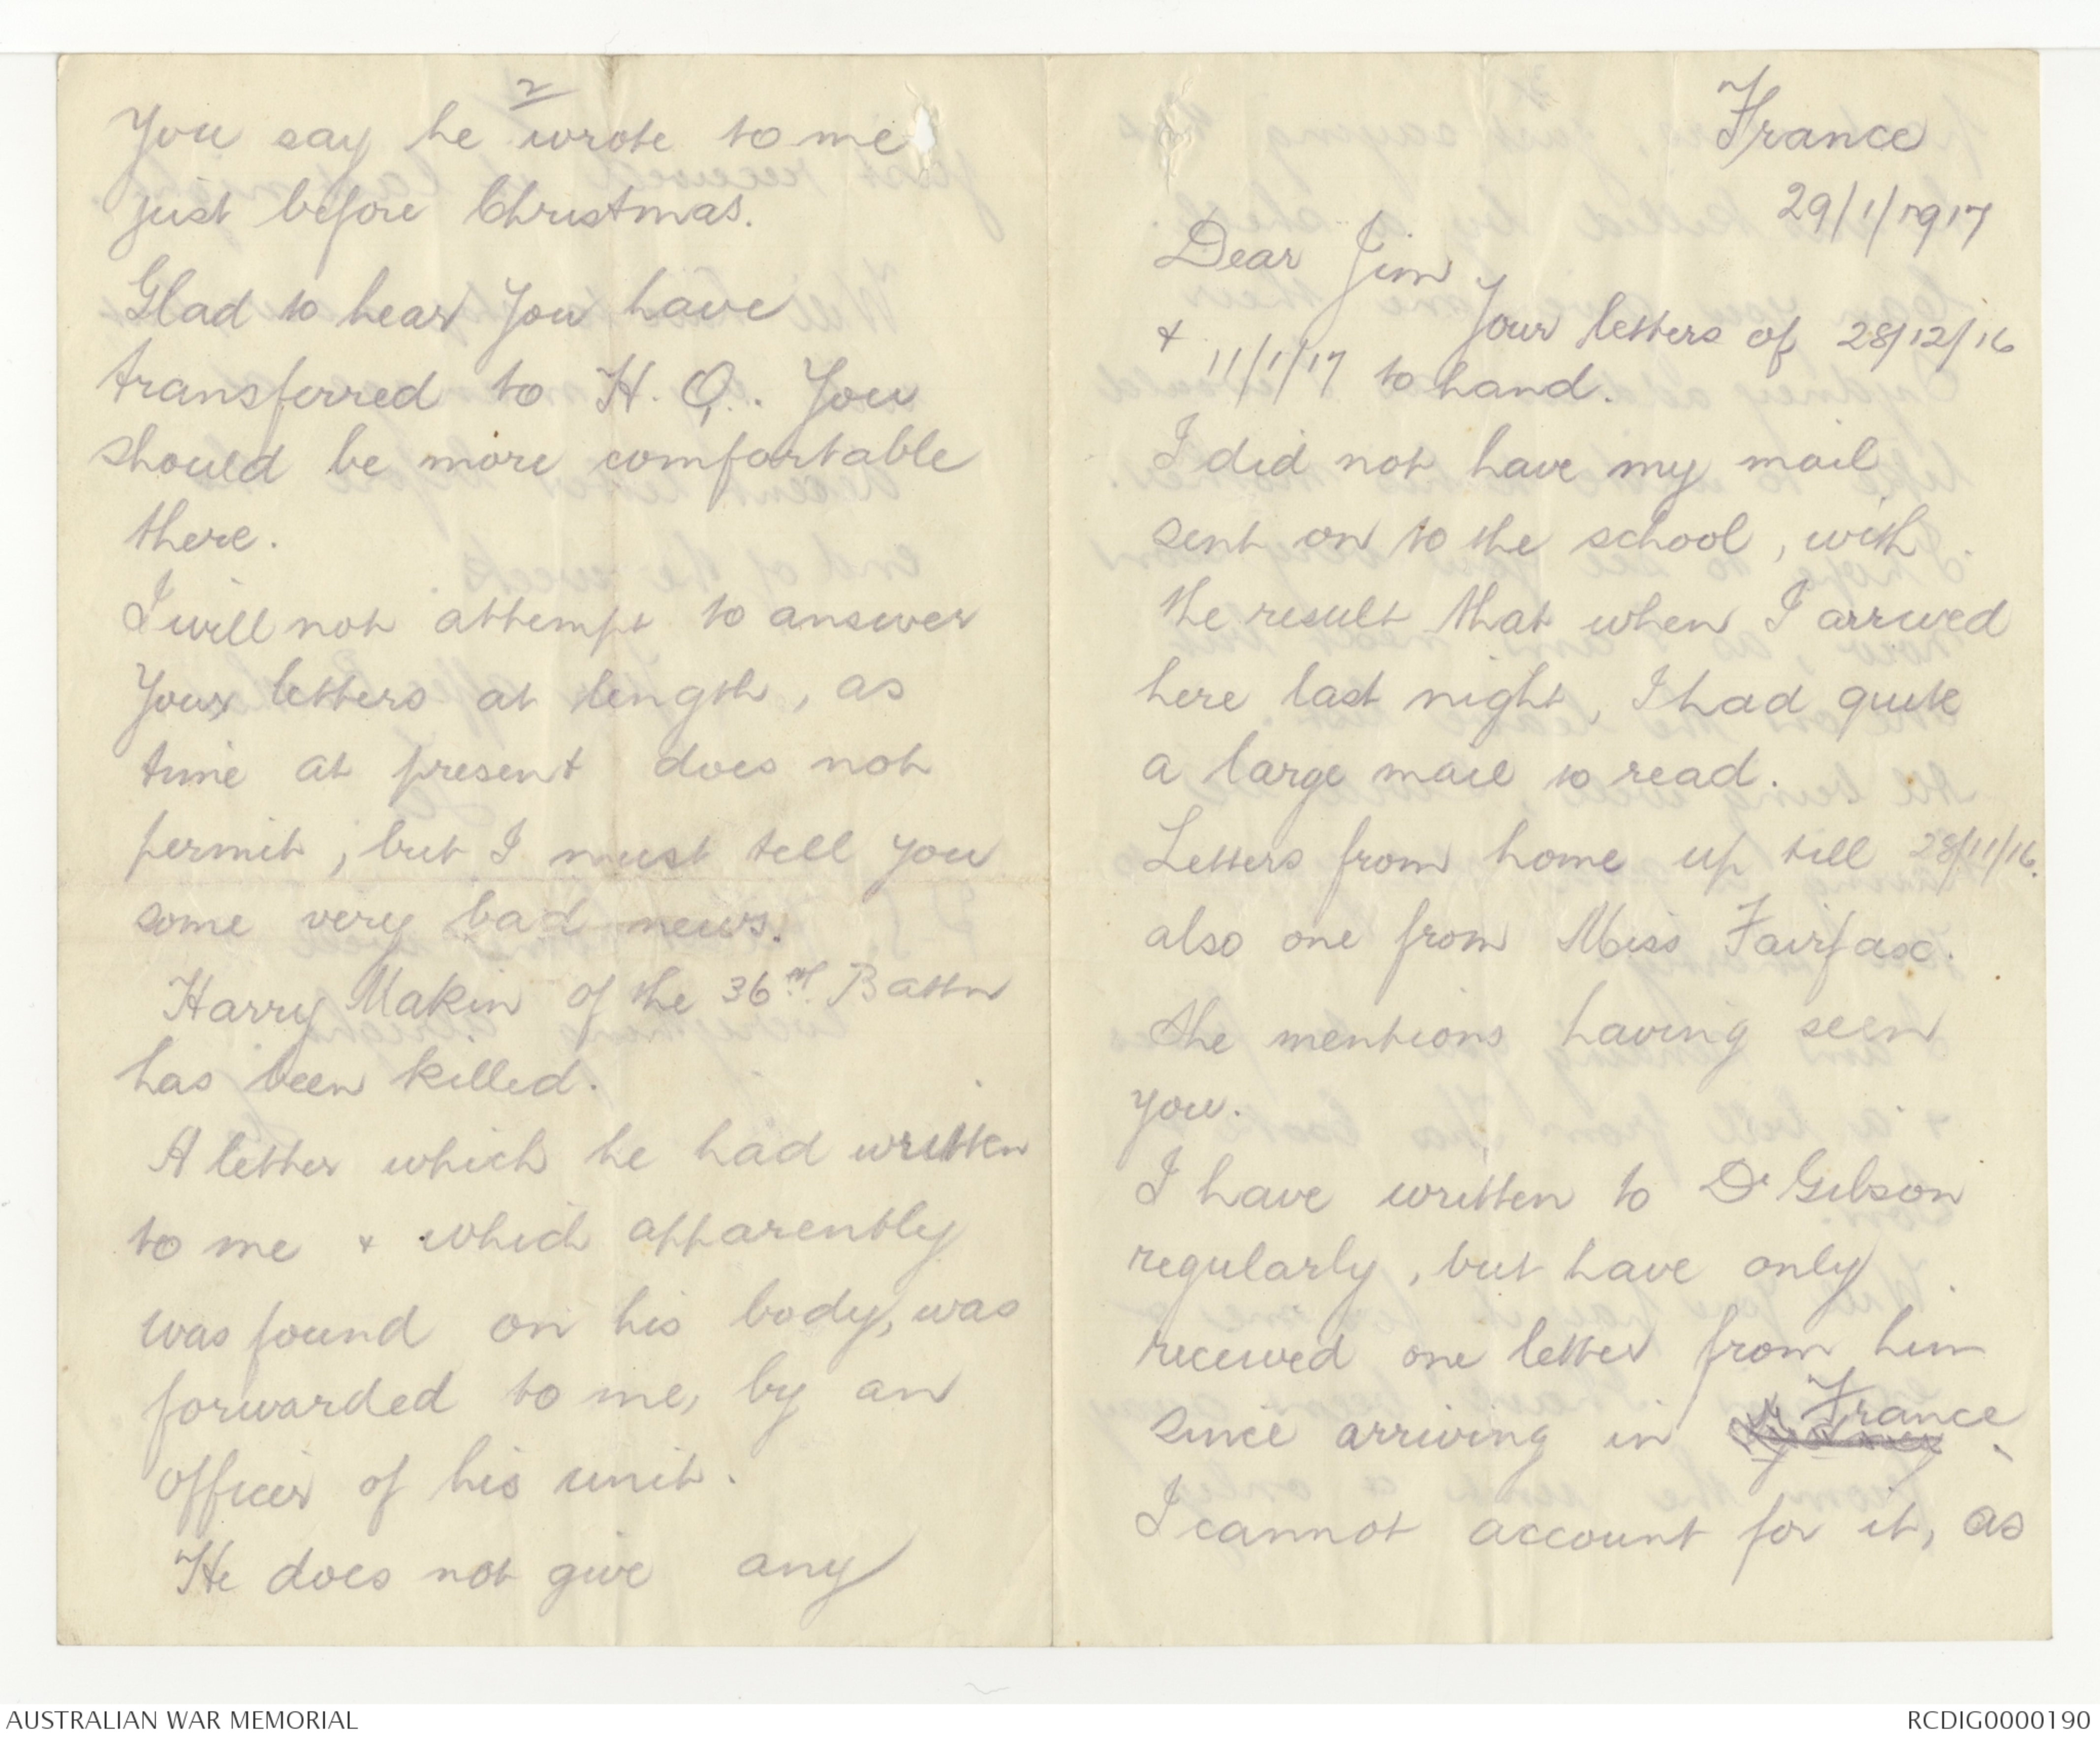 France
29/1/1917
Dear Jim
Your letters of 28/12/16
& 11/1/17 to hand.
I did not have my mail
sent on to the school, with
the result that when I arrived
here last night, I had quite
a large mail to read.
Letters from home up till 28/11/16.
also one from Miss Fairfax.
She mentions having seen
you.
I have written to Dr Gibson
regularly, but have only
received one letter from him
since arriving in France
I cannot account for it, as
2
You say he wrote to me
just before Christmas.
Glad to hear you have
transferred to H.Q.. You
should be more comfortable
there.
I will not attempt to answer
your letters at length, as
time at present does not
permit, but I must tell you
some very bad news.
Harry Makin of the 36th Battn
has been killed.
A letter which he had written
to me & which apparently
was found on his body, was
forwarded to me, by an
officer of his unit.
He does not give any
AUSTRALIAN WAR MEMORIAL
RCDIG0000190